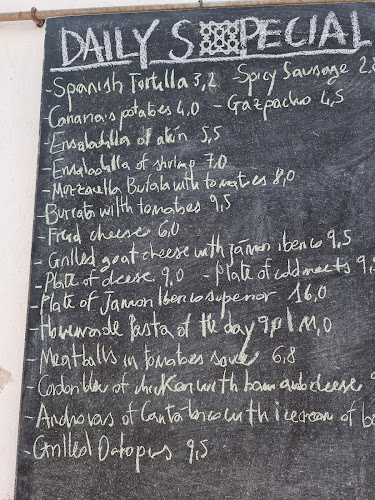 DAILY S PECIAL
- Spanish Tortilla 3,2 - Spicy Sausage 2,
- Canarias potatoes 4,0 - Gazpacho 4,5
- Ensaladilla of atún 5,5
- Ensaladilla of shrimp 7,0
- Mozzarella Bufala with tomatoes 8,0
- Burrata with tomatoes 9,5
- Fried cheese 6,0
- Grilled goat cheese with jámon iberico 9,5
- Plate of cheese 9,0 - Plate of cold meats 9,
- Plate of Jamon Iberico superior 16,0
- Homemade Pasta of the day 9,0 | 11,0
- Meatballs in tomatoes sauce 6,8
- Cordon bleu of chicken with ham and cheese
- Anchovas of Cantabrico with icecream of
- Grilled Octopus 9,5